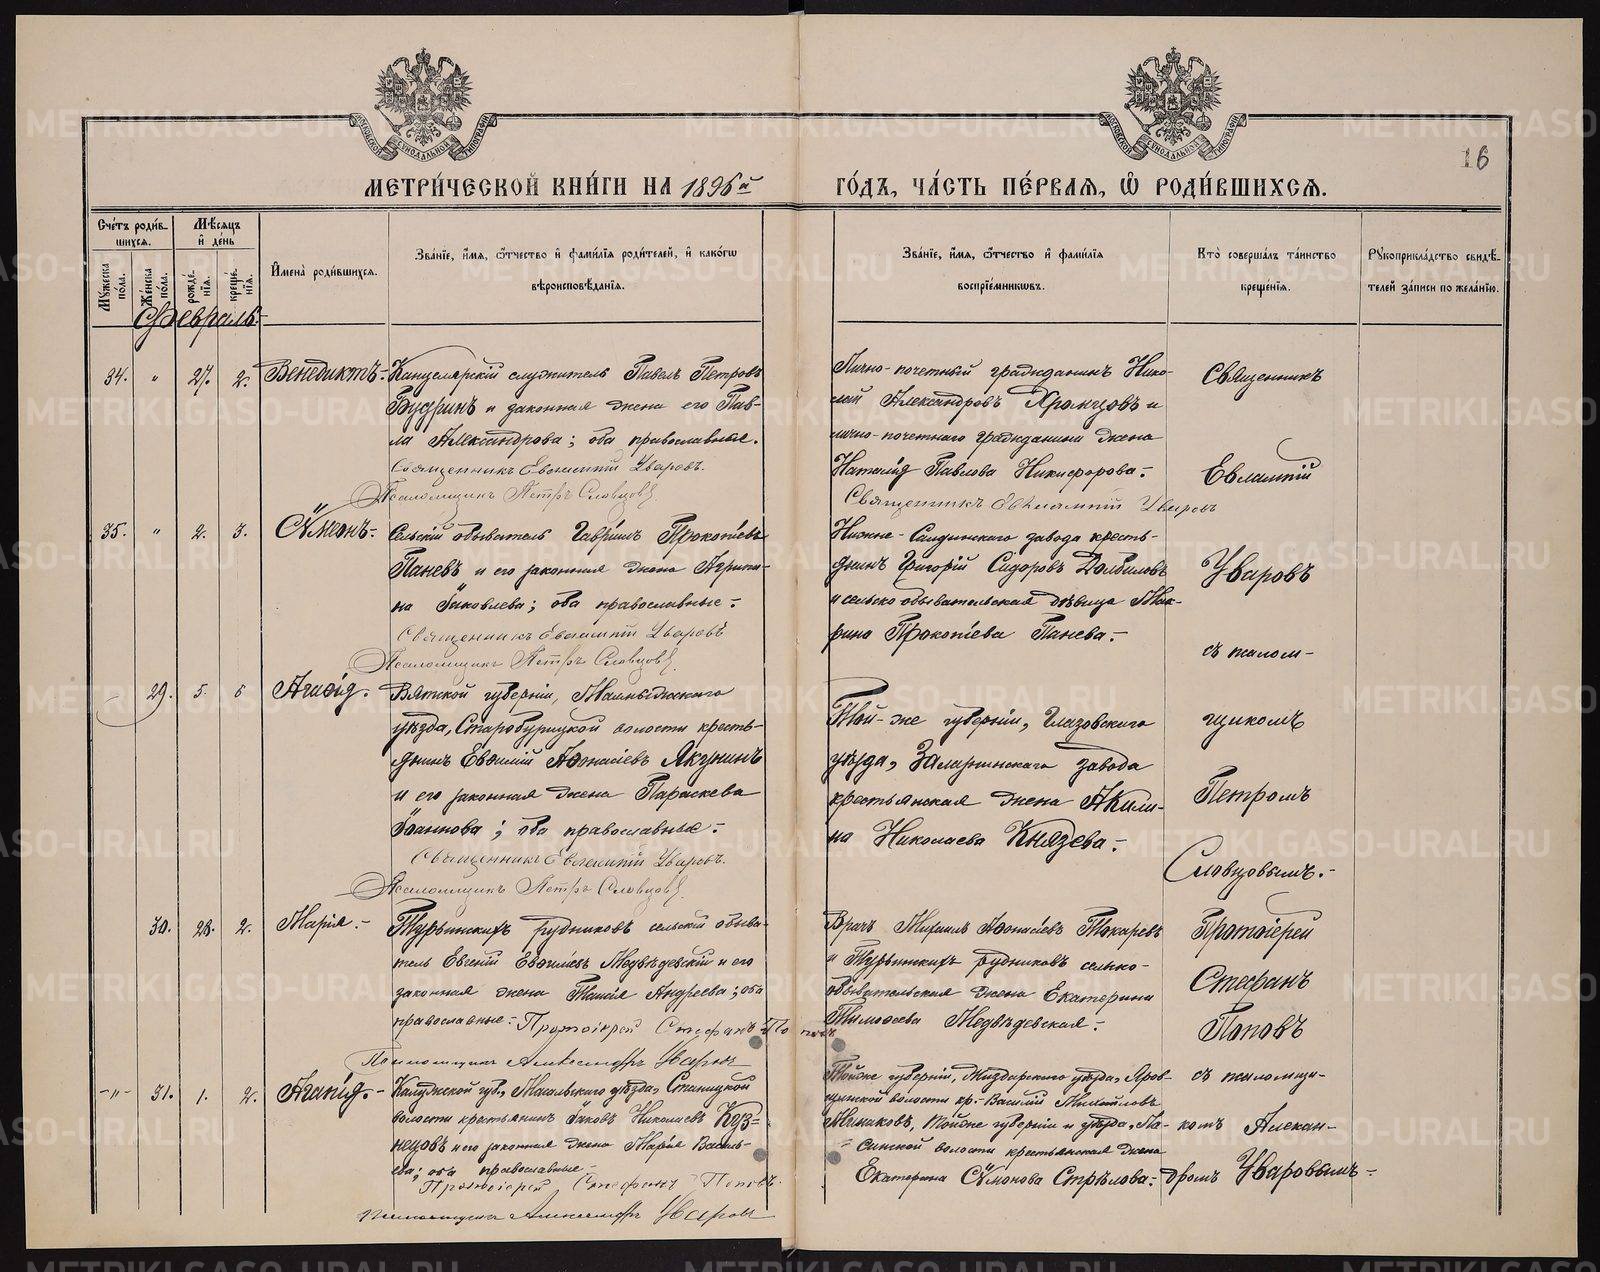 16
МЕТРИ́ЧЕСКОЙ КНИ́ГИ НА 1896й ГО́ДЪ, ЧА́СТЬ ПЕ́РВАѦ, Ѡ҆ РОДИ́ВШИХСѦ.
Сче́тъ роди́вшихсѧ.
Мꙋ́жеска по́ла.
Же́нска по́ла.
Мѣ́сѧцъ и҆ де́нь
рожде́нїѧ.
креще́нїѧ.
И҆мена̀ роди́вшихсѧ.
Зва́нїе, и҆́мѧ, ѻ҆́тчество и҆ фами́лїѧ роди́телей, и҆ како́гѡ
вѣроисповѣ́данїѧ.
Зва́нїе, и҆́мѧ, ѻ҆́тчество и҆ фами́лїѧ
воспрїе́мникѡвъ.
Кто̀ соверша́лъ та́инство
креще́нїѧ.
Рꙋкоприкла́дство свидѣ́телей за́писи по жела́нїю.
Февраль.
34. " 27. 2. Венедиктъ.
Канцелярскій служитель Павелъ Петровъ
Будринъ и законная жена его Пав-
ла Александрова; оба православные.
Священникъ Евлампій Уваровъ.
Псаломщикъ Петръ Словцовъ
Лично-почетный гражданинъ Нико-
лай Александровъ Храмцовъ и
лично-почетнаго гражданина жена
Наталія Павлова Никифорова.
Священникъ Евлампій Уваровъ
35. " 2. 3. Сѷмеонъ.
Сельскій обыватель Гавріилъ Прокопіевъ
Паневъ и его законная жена Агрипи-
на Іаковлева; оба православные.
Священникъ Евлампій Уваровъ.
Псаломщикъ Петръ Словцовъ
Нижне-Салдинскаго завода кресть-
янинъ Григорій Сидоровъ Долбиловъ
и сельско обывательская дѣвица Мак-
рина Прокопіева Панева.
29. 5. 6 Агаѳія.
Вятской губерніи, Малмыжскаго
уѣзда, Старобурецкой волости кресть-
янинъ Евѳимій Аѳанасіевъ Якунинъ
и его законная жена Параскева
Іоаннова; оба православные.
Священникъ Евлампій Уваровъ.
Псаломщикъ Петръ Словцовъ
Той-же губерніи, Глазовскаго
уѣзда, Залазнинскаго завода
крестьянская жена Акили-
на Николаева Князева.
Священникъ
Евлампій
Уваровъ
съ псалом-
щикомъ
Петромъ
Словцовымъ.
30. 28. 2. Марія.
Турьинскихъ рудниковъ сельскій обыва-
тель Евгеній Евѳиміевъ Медвѣдевскій и его
законная жена Таисія Андреева; оба
православные. Протоіерей Стефанъ Поповъ
Псаломщикъ Александръ Уваровъ
Врачъ Михаилъ Аѳанасіевъ Токаревъ
и Турьинскихъ рудниковъ сельско-
обывательская жена Екатерина
Тимоѳеева Медвѣдевская.
Протоіерей
Стефанъ
Поповъ
-"- 31. 1. 2. Агапія.
Калужской губ., Мосальскаго уѣзда,
волости крестьянинъ Іаковъ Николаевъ Куз-
нецовъ и его законная жена Марія Василь-
ева; оба православные
Протоіерей Стефанъ Поповъ.
Псаломщикъ Александръ Уваровъ
Тойже губерніи, Жиздринскаго уѣзда,
волости кр. Василій Михаиловъ
Тойже губерніи и уѣзда,
волости крестьянская жена
Екатерина Сѷмонова Стрѣлова.
съ псаломщи-
комъ Алексан-
дромъ Уваровымъ
METRIKI.GASO-URAL.RU